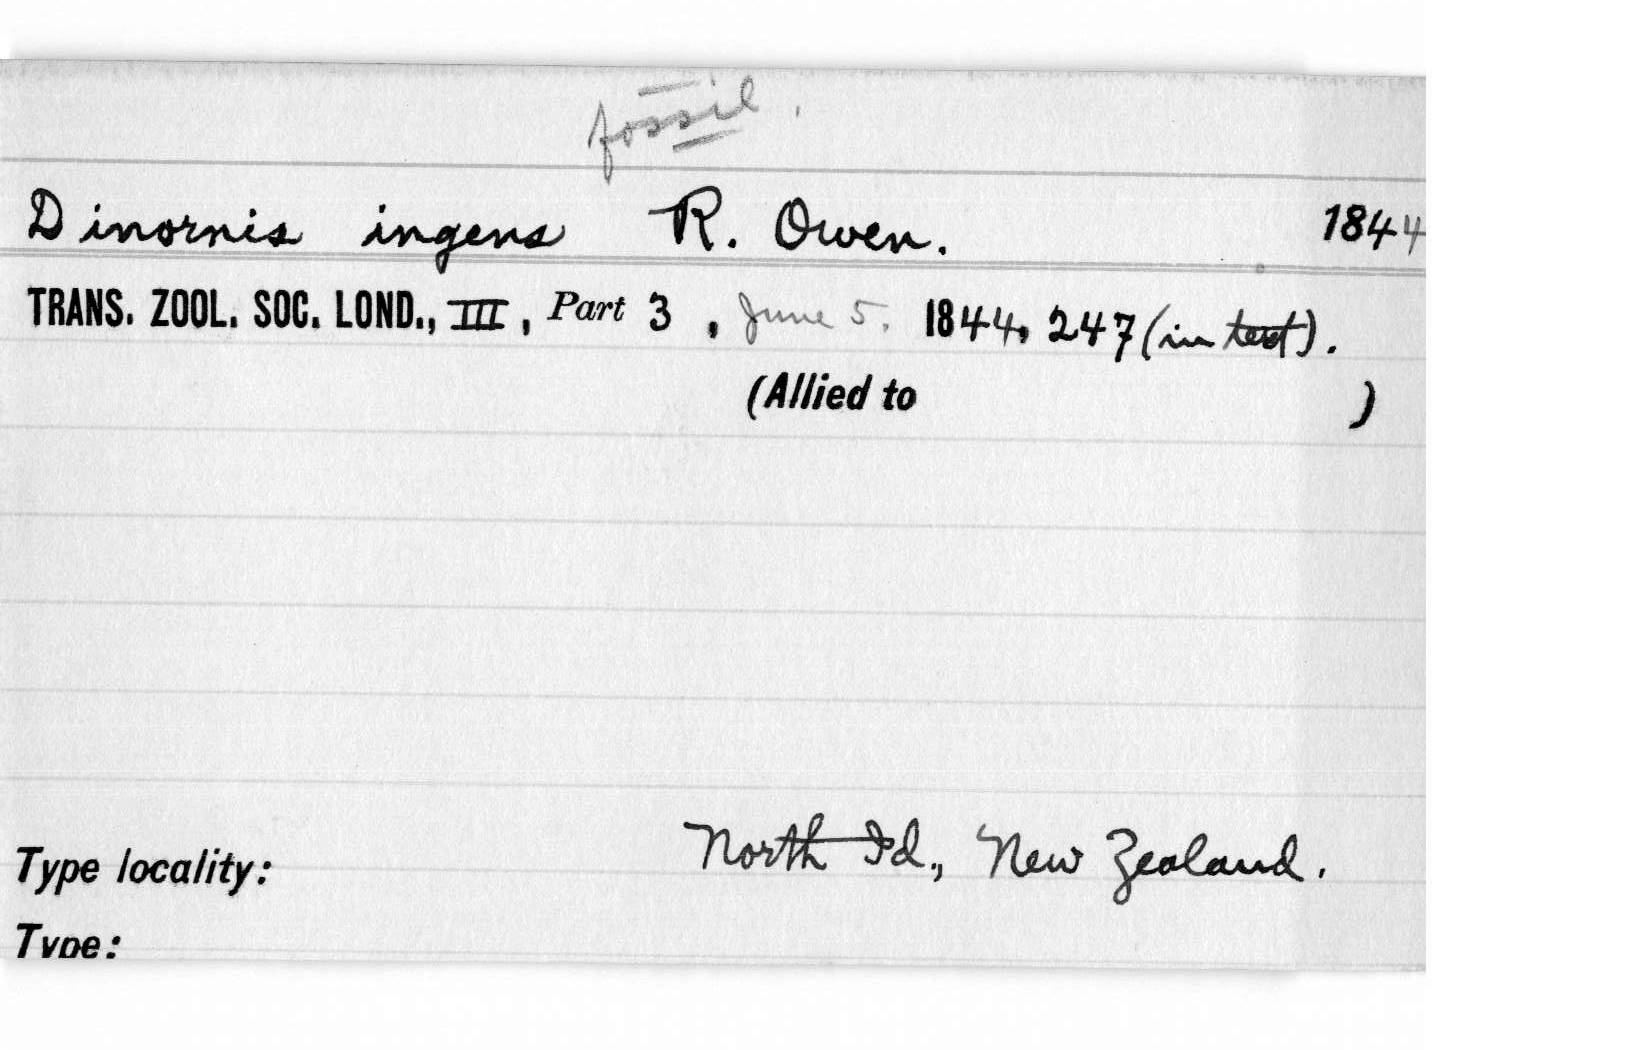 fossil.
Dinornis ingens R. Owen. 1844
TRANS. ZOOL. SOC. LOND., III, Part 3, June 5. 1844, 247 (in text).
(Allied to )
Type locality: North Id., New Zealand.
Type: